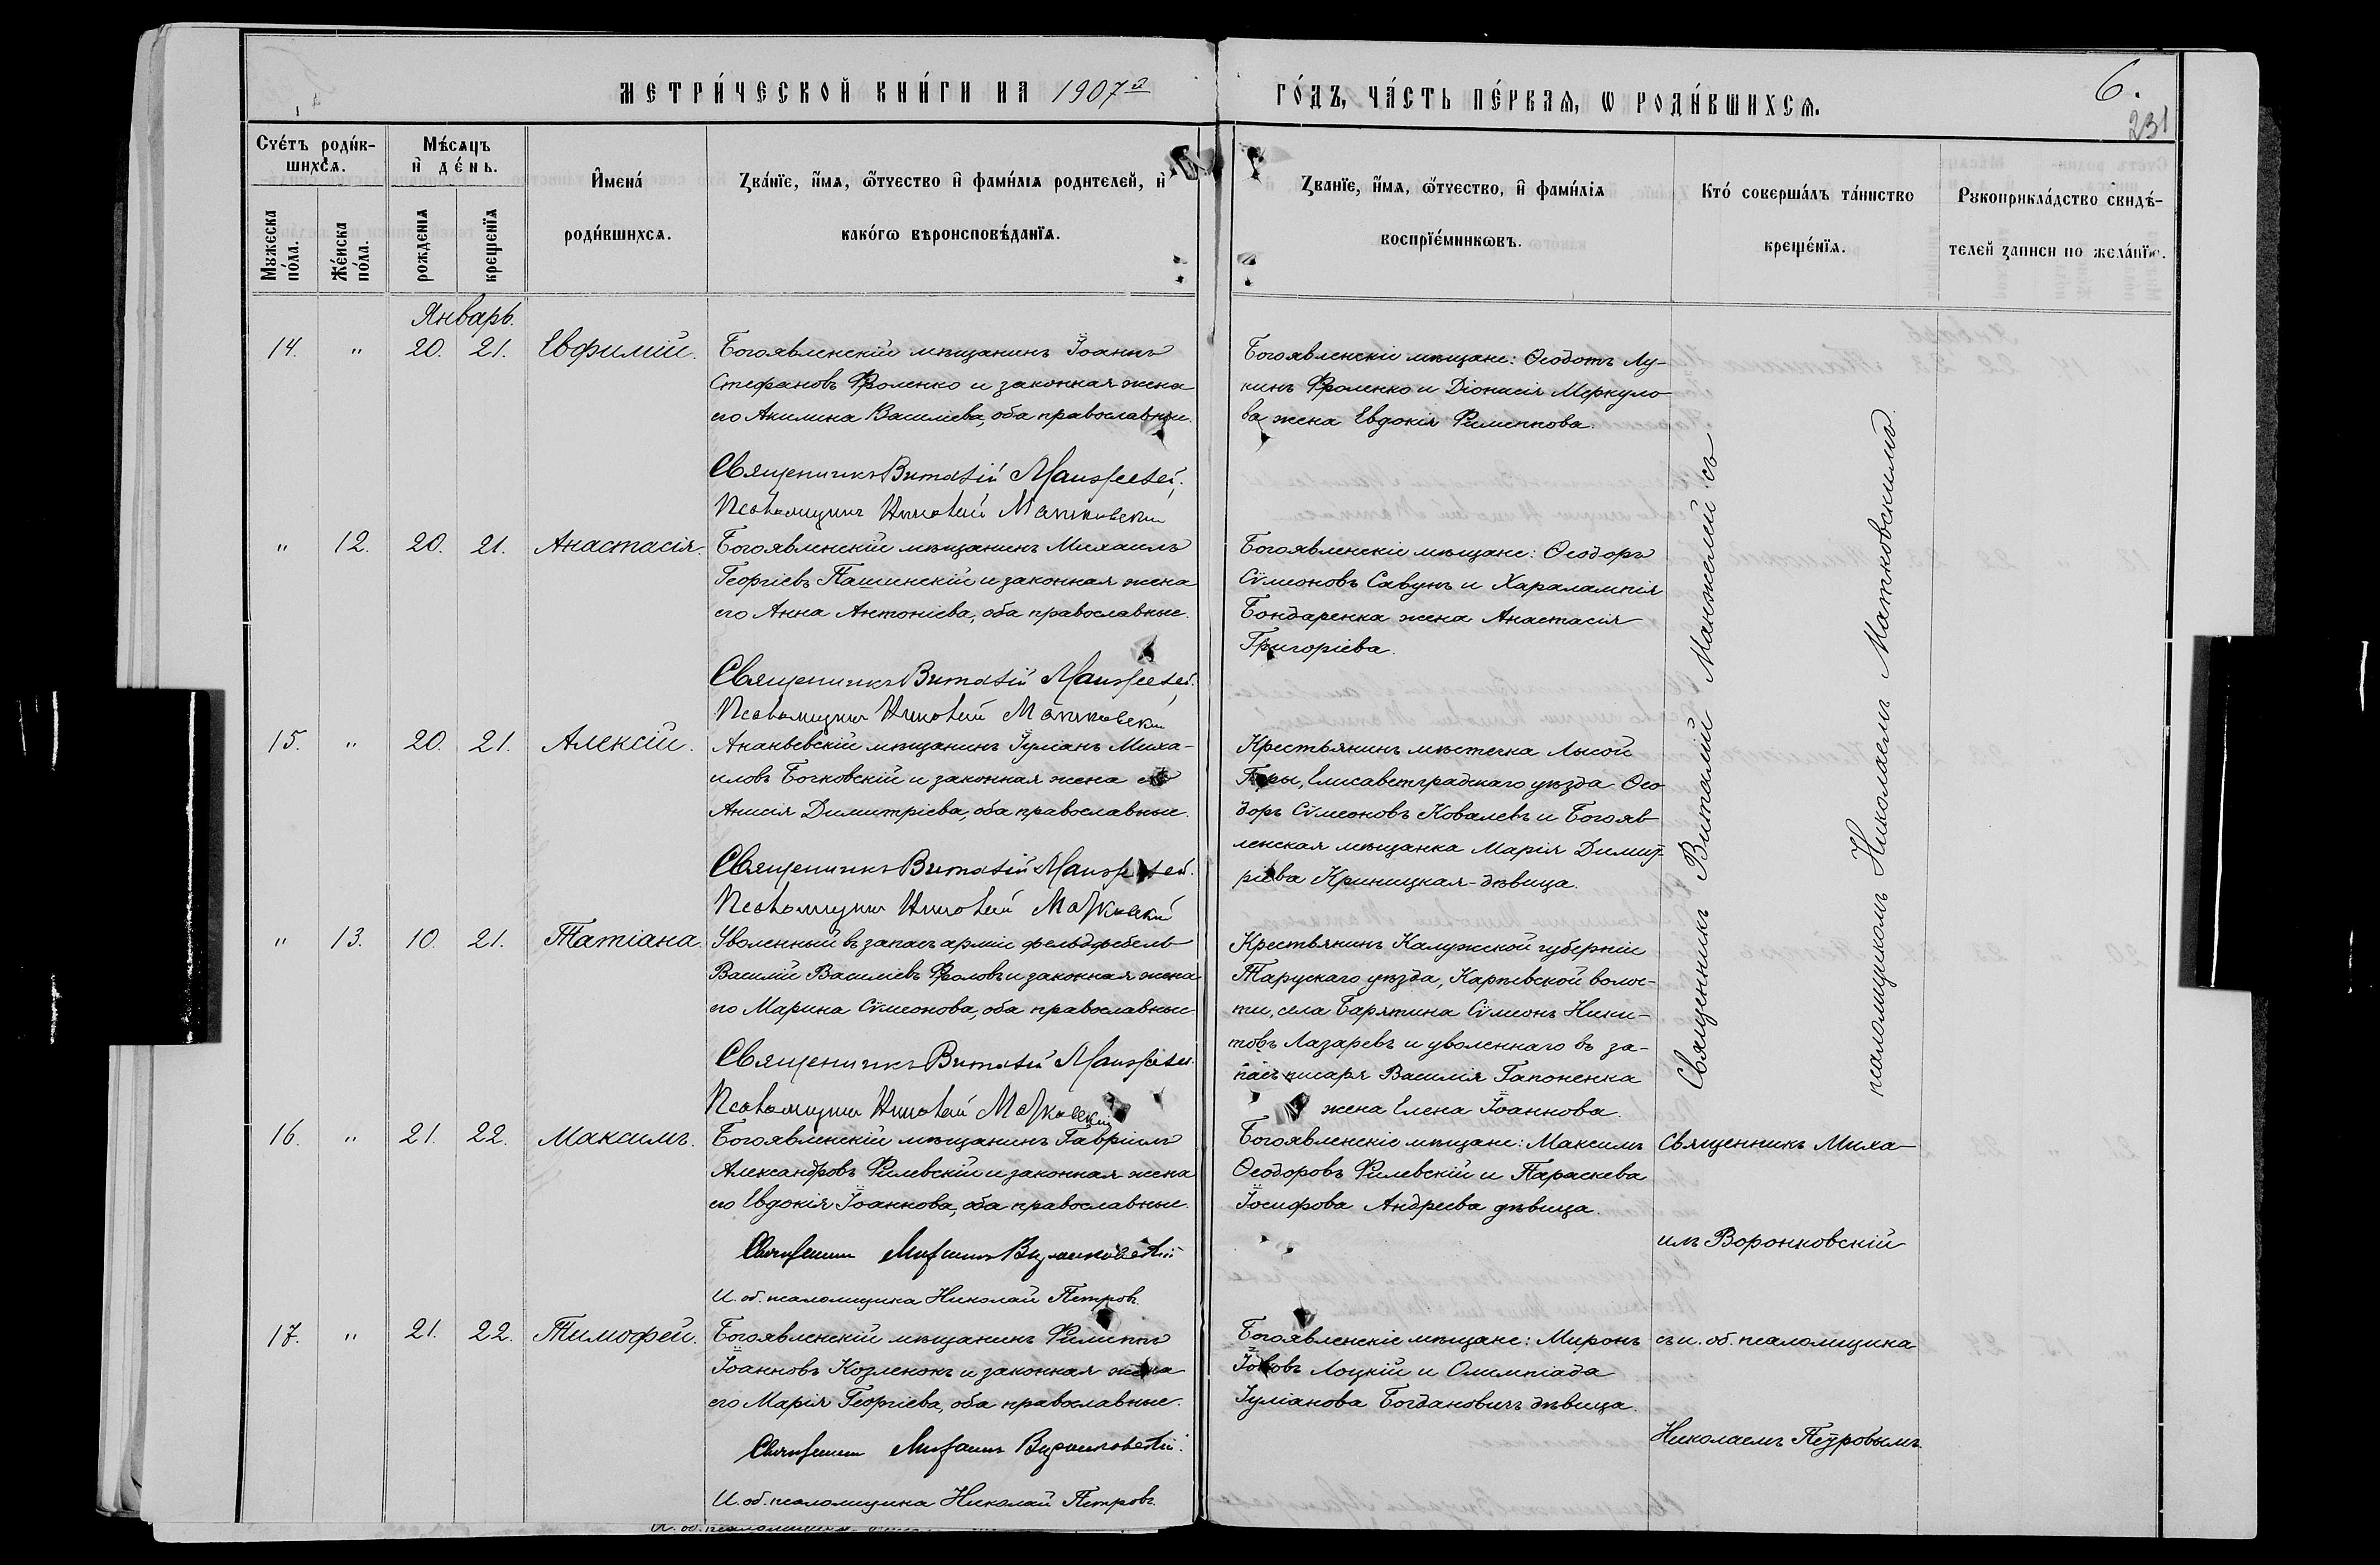 МЕТРИ́ЧЕСКОЙ КНИ́ГИ НА 1907й
ГО́ДЪ, ЧА́СТЬ ПЕ́РВАѦ, Ѡ РОДИ́ВШИХСѦ.
6.
231
Сче́тъ роди́в-
шихсѧ.
Мѣ́сѧцъ
и҆ де́нь.
И҆мена́
роди́вшихсѧ.
Зва́нїе, и҆́мѧ, ѻ҆́тчество и҆ фами́лїѧ родителей, и҆
како́гѡ вѣроисповѣ́данїѧ.
Званїе, и҆́мѧ, ѻ҆́тчество, и҆ фами́лїѧ
воспрїе́мникѡвъ.
Кто́ соверша́лъ та́инство
креще́нїѧ.
Рꙋкоприкла́дство свидѣ́-
телей записи по жела́нїю.
Мꙋжеска
по́ла.
Же́нска
по́ла.
рожденїѧ
крещенїѧ
Январь.
14. " 20. 21. Евфимій.
Богоявленскій мѣщанинъ Іоаннъ
Стефановъ Фроленко и законная жена
его Акилина Василіева, оба православные.
Священникъ Виталій Манжелей.
Псаломщикъ Николай Матковскій
Богоявленскіе мѣщане: Ѳеодотъ Лу-
кинъ Фроленко и Діонисія Меркуло-
ва жена Евдокія Филиппова.
" 12. 20. 21. Анастасія.
Богоявленскій мѣщанинъ Михаилъ
Георгіевъ Пашинскій и законная жена
его Анна Антоніева, оба православные.
Священникъ Виталій Манжелей.
Псаломщикъ Николай Матковскій
Богоявленскіе мѣщане: Ѳеодоръ
Сѵмеоновъ Савунъ и Харалампія
Бондаренка жена Анастасія
Григоріева.
15. " 20. 21. Алексій.
Ананьевскій мѣщанинъ Іуліанъ Миха-
иловъ Бочковскій и законная жена его
Анисія Димитріева, оба православные.
Священникъ Виталій Манжелей.
Псаломщикъ Николай Матковскій
Крестьянинъ мѣстечка Лысой
Горы, Елисаветградскаго уѣзда Ѳео-
доръ Сѵмеоновъ Ковалевъ и Богояв-
ленская мѣщанка Марія Димит-
ріева Криницкая-дѣвица.
" 13. 10. 21. Татіана.
Уволенный въ запасъ арміи фельдфебель
Василій Василіевъ Фроловъ и законная жена
его Марина Сѵмеонова, оба православные.
Священникъ Виталій Манжелей.
Псаломщикъ Николай Матковскій
Крестьянинъ Калужской губерніи
Тарускаго уѣзда, Карпевской волос-
ти, села Барятина Сѵмеонъ Ники-
товъ Лазаревъ и уволеннаго въ за-
пасъ писаря Василія Гапоненка
жена Елена Іоаннова.
Священникъ Виталій Манжелей съ
псаломщикомъ Николаемъ Матковскимъ.
16. " 21. 22. Максимъ.
Богоявленскій мѣщанинъ Гавріилъ
Александровъ Филевскій и законная жена
его Евдокія Іоаннова, оба православные.
Священникъ Михаилъ Воронковскій
И. об. псаломщика Николай Петровъ.
Богоявленскіе мѣщане: Максимъ
Ѳеодоровъ Филевскій и Параскева
Іосифова Андреева дѣвица.
Священникъ Миха-
илъ Воронковскій
17. " 21. 22. Тимофей.
Богоявленскій мѣщанинъ Филиппъ
Іоанновъ Козленокъ и законная жена
его Марія Георгіева, оба православные.
Священникъ Михаилъ Воронковскій.
И. об. псаломщика Николай Петровъ.
Богоявленскіе мѣщане: Миронъ
Іововъ Лоцкій и Олимпіада
Іуліанова Богдановичъ дѣвица.
съ и. об. псаломщика
Николаемъ Петровымъ.